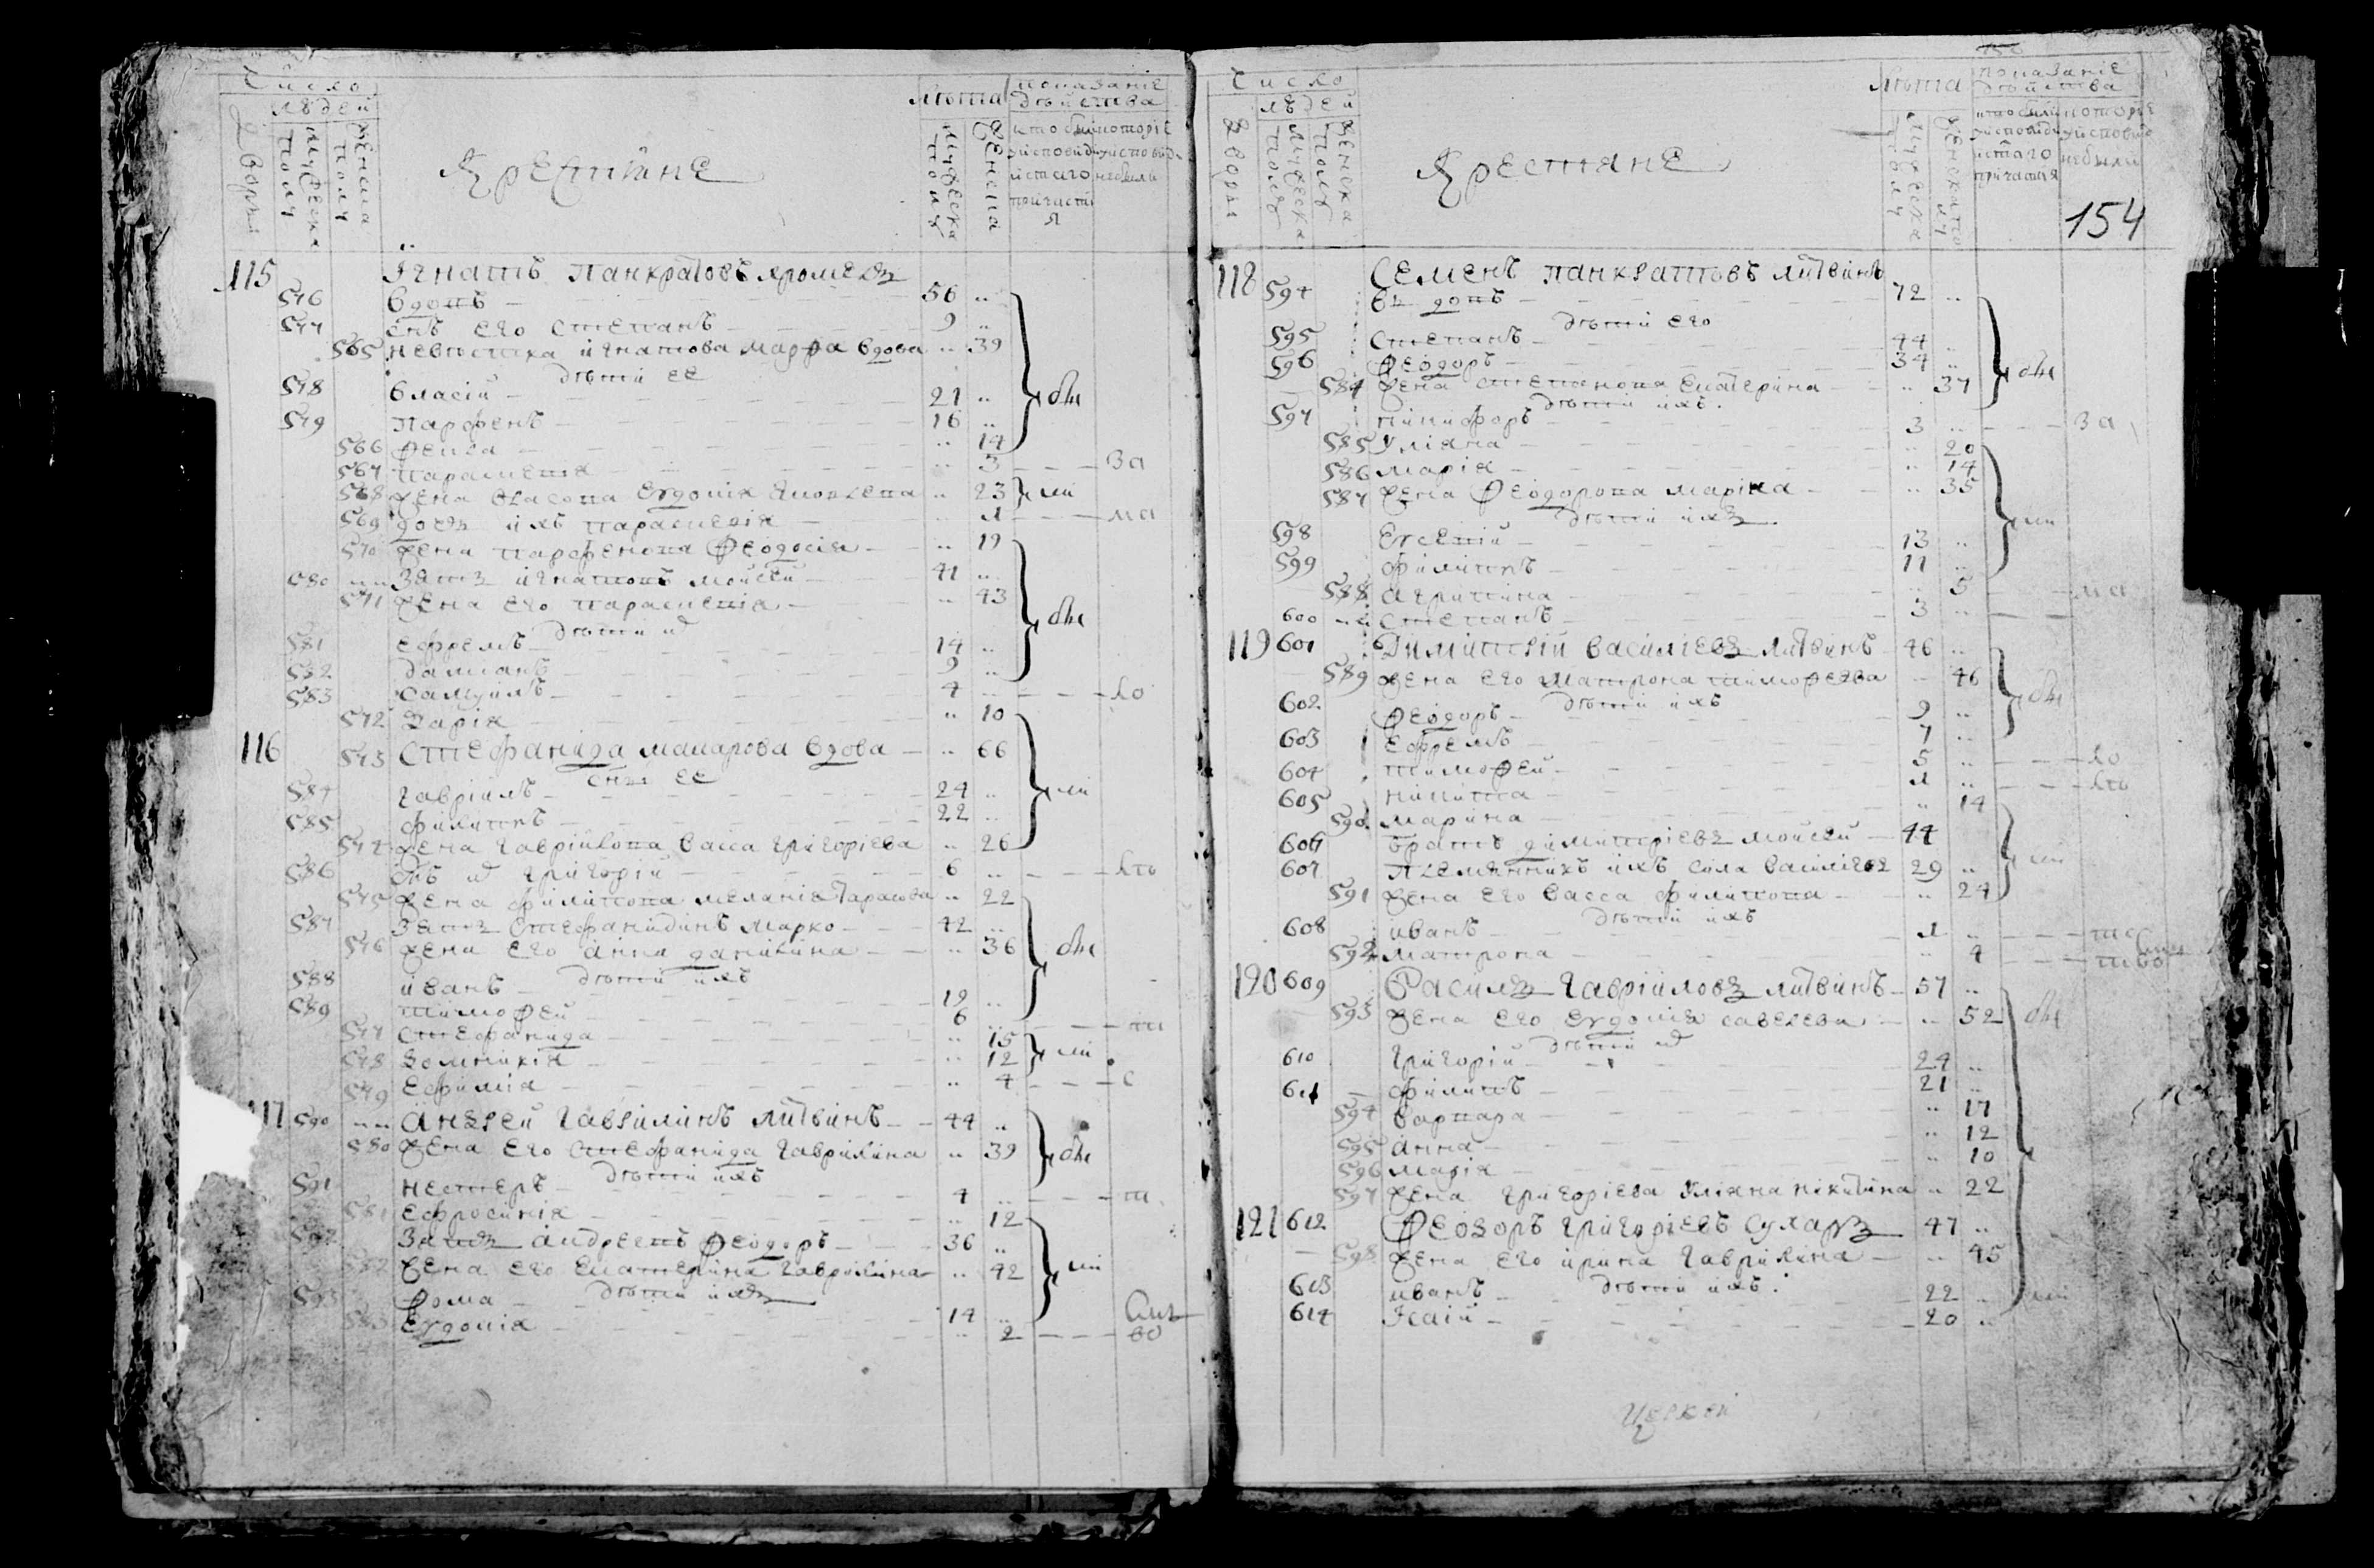 Число
людей
Дворы
мужеска полу
женска полу
Крестяне
лѣта
мужеска полу
женска
показание действа
кто были у исповеди и стаго причастия
которие у исповеди небыли
115 Iгнатъ Панкратовъ
576 вдовъ 56 ..
577 снъ его Степанъ 9 ..
565 невѣстка игнатова марфа вдова .. 39
дѣти ее
578 власiй 21 ..
579 Парфенъ 16 ..
566 Фенва .. 14
567 Параскевiя .. 3 - - - за
568 жена власова Евдокiя Яковлева .. 23
569 дочь ихъ параскевiя .. 1 - - - ма
570 жена парфенова Феодосiя .. 19
580 зять игнатовъ мойсей 41 ..
571 жена его параскевiя .. 43
дѣти их
581 Ефремъ 14 ..
582 Дамианъ 9 ..
583 Самуилъ 4 .. - - - ко
572 Дарiя .. 10
116 573 Стефанида макарова вдова .. 66
сны ее
584 гаврiилъ 24 ..
585 филиппъ 22 ..
574 жена гаврiилова васса григорiева .. 26
586 снъ их григорiй 6 ..
575 жена филипова меланiя тарасова .. 22
587 зять Стефанидинъ марко 42 ..
576 жена его анна данилина .. 36
дѣти ихъ
588 иванъ 12 ..
589 тимофей 6 ..
577 Стефанида .. 15
578 Домникiя .. 12
579 Ефимiя .. 4 - - - с
117 590 Андрей гаврилинъ литвинъ 44 ..
580 жена его Стефанида гаврилина .. 39
дѣти ихъ
591 нестеръ 4 .. - - - т
581 Ефросинiя .. 12
592 зять андреевъ Феодоръ 36 ..
582 жена его Екатерина гаврилина .. 42
дѣти ихъ
593 Фома 14 ..
583 Евдокiя .. 2 - - -
Число
людей
Дворы
мужеска полу
женска полу
Крестяне
лѣта
показание действа
кто были у исповеди и стаго причастия
которие у исповеди небыли
154
118 594 Семенъ панкратовъ литвинъ
вдовъ 72 ..
дѣти его
595 Степанъ 44 ..
596 Феодоръ 34 ..
584 жена степанова Екатерина .. 37
дѣти ихъ
597 никифоръ 3 .. - - - за
585 Улiяна .. 20
586 марiя .. 14
587 жена Феодорова марина .. 35
дѣти ихъ
598 Евсевiй 13 ..
599 филиппъ 11 ..
588 агрипина .. 5 - - ма
600 Степанъ 3 ..
119 601 Димитрiй василiевъ литвинъ 46 ..
589 жена его матрона тимофеева .. 46
дѣти ихъ
602 Феодоръ 9 ..
603 Ефремъ 7 ..
604 тимофей 5 .. - - - ко
605 никита 1 ..
590 марина .. 14
606 братъ димитрiевъ мойсей 44
607 племянникъ ихъ сила василiевъ 29 ..
591 жена его васса филипова .. 24
дѣти ихъ
608 иванъ 1 ..
592 матрона .. 4
120 609 Василь гаврiиловъ литвинъ 57 ..
593 жена его Евдокiя савелева .. 52
дѣти их
610 григорiй 24 ..
611 филипъ 21 ..
594 варвара .. 17
595 анна .. 12
596 марiя .. 10
597 жена григорiева Улiяна никитина .. 22
121 612 Феодоръ григорiевъ Сухарь 47 ..
598 жена его ирина гаврилина .. 45
дѣти ихъ
613 иванъ 22 ..
614 Iсаiй 20 ..
Церкви